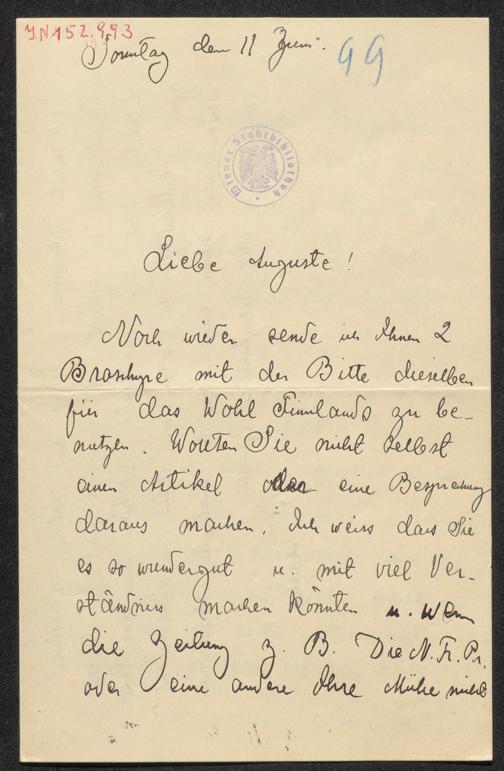 JN 152.993
Sonntag den 11 Juni.
99
Wiener Stadtbibliothek
Liebe Auguste!
Noch wieder sende ich Ihnen 2
Broschyre mit der Bitte dieselben
für das Wohl Finnlands zu be-
nutzen. Wollten Sie nicht selbst
einen Artikel oder eine Besprechung
daraus machen. Ich weiss dass Sie
es so wundergut u. mit viel Ver-
ständniss machen könnten u. wenn
die Zeitung z. B. Die N. Fr. Pr.
oder eine andere Ihre Mühe nicht